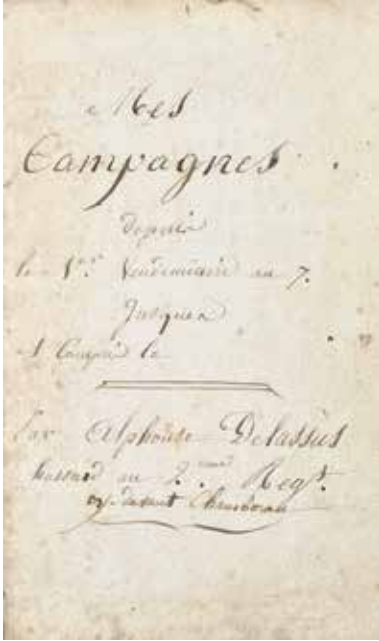 Mes
Campagnes
depuis
le 1er. Vendemiaire an 7.
Jusques
et Compris le
Par Alphonse Delassus
hussard au 2.eme Regt.
cy-devant Chamboran